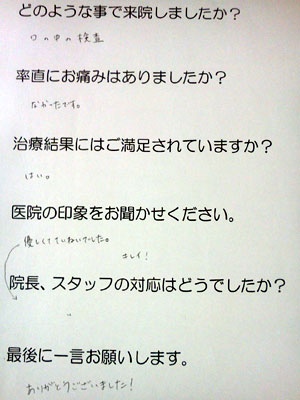 どのような事で来院しましたか？
口の中の検査
率直にお痛みはありましたか？
なかったです。
治療結果にはご満足されていますか？
はい。
医院の印象をお聞かせください。
優しくていねいでした。
キレイ！
院長、スタッフの対応はどうでしたか？
〃
最後に一言お願いします。
ありがとうございました！